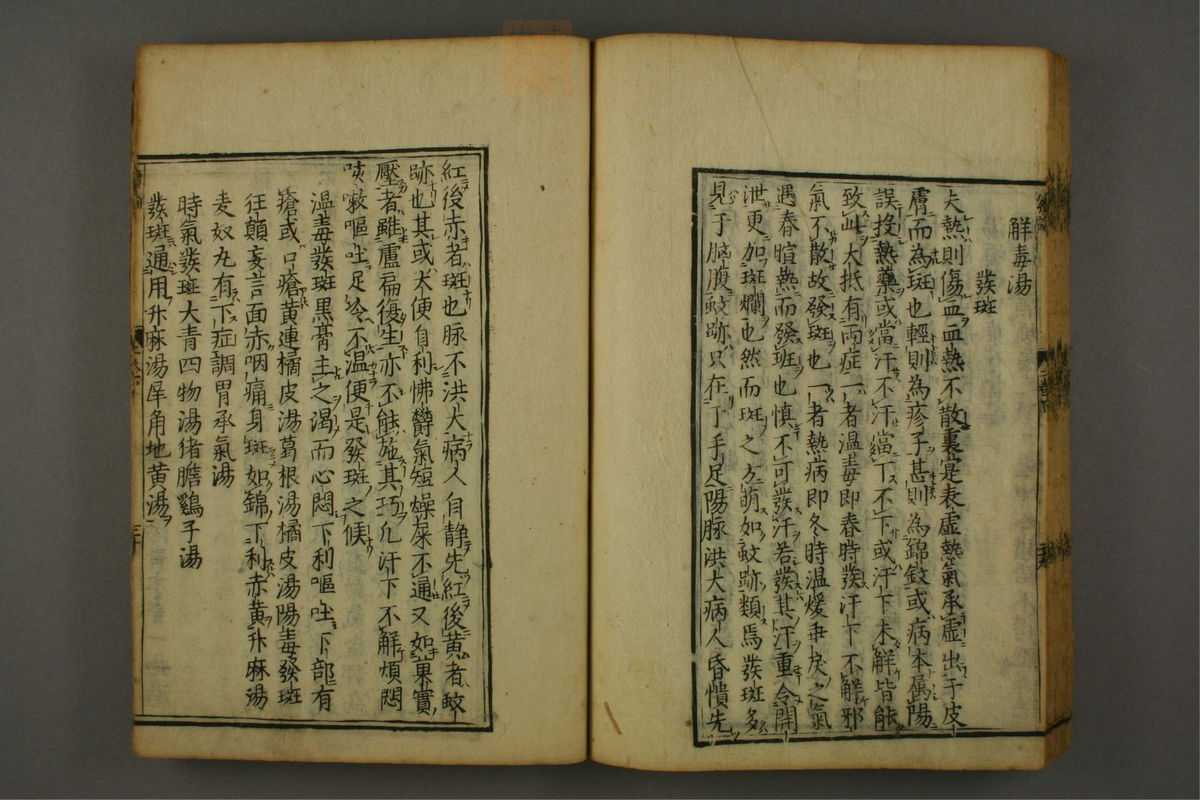 解毒湯
發斑
大熱則傷血血熱不散裏寔表虛熱氣承虛出于皮
膚而為斑也輕則為疹子甚則為錦紋或病本属陽
誤投熱藥或當汗不汗當下不下或汗下未解皆能
致此大抵有兩症一者温毒即春時發汗下不解邪
氣不散故發斑也一者熱病即冬時温煖乖戾之氣
遇春暄熱而發斑也慎不可發汗若發其汗重令開
泄更加斑爛也然而斑之方萌如蚊跡類焉發斑多
見于胸腹蚊跡只在于手足陽脉洪大病人昏憒先
紅後赤者斑也脉不洪大病人自静先紅後黄者蚊
跡也其或大便自利怫欝氣短燥屎不通又如果實
壓者雖盧扁復生亦不能施其巧凡汗下不解煩悶
咳嗽嘔吐足冷不温便是發斑之候
温毒發斑黒膏主之渇而心悶下利嘔吐下部有
瘡或口瘡黄連橘皮湯葛根湯橘皮湯陽毒發斑
狂顛妄言面赤咽痛身斑如錦下利赤黄升麻湯
麦奴丸有下症調胃承氣湯
時氣發斑大青四物湯猪膽鷄子湯
發斑通用升麻湯犀角地黄湯